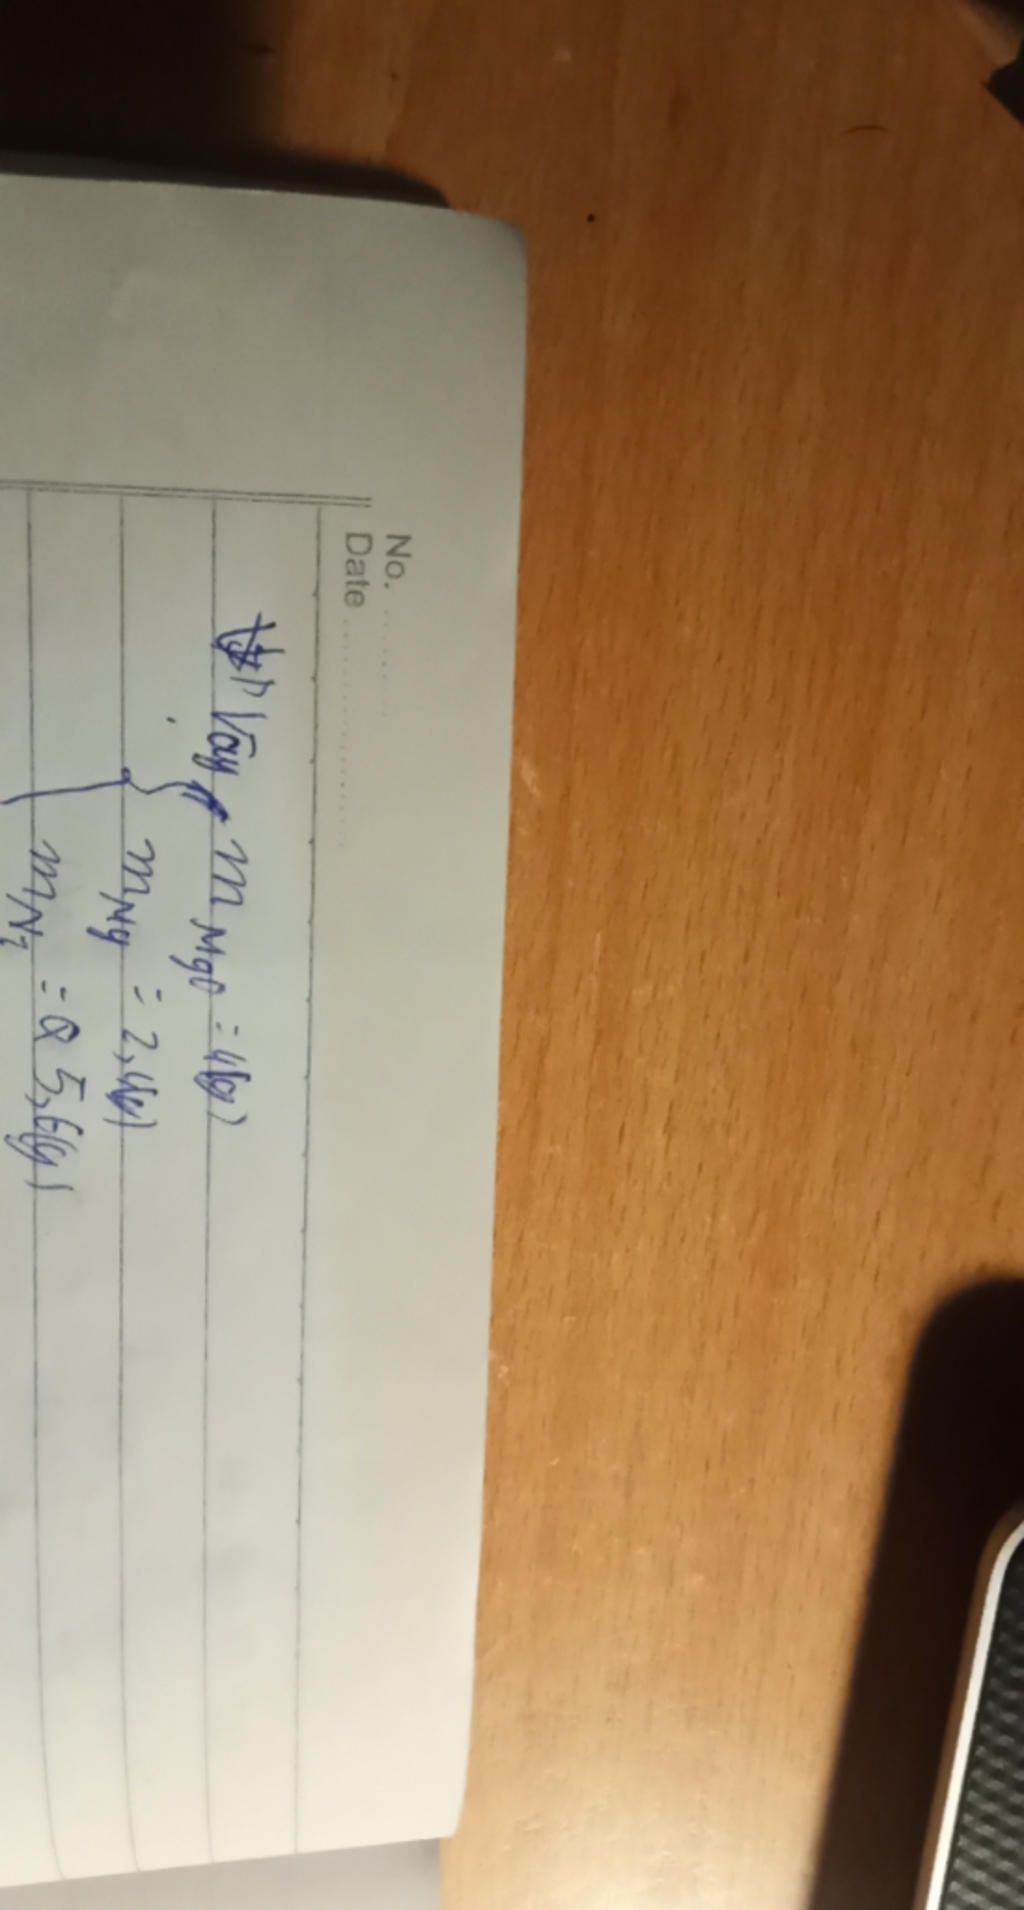 No. ..........
Date ....................
Vậy m MgO = 4(g)
m Mg = 2,4(g)
m N2 = 5,6(g)